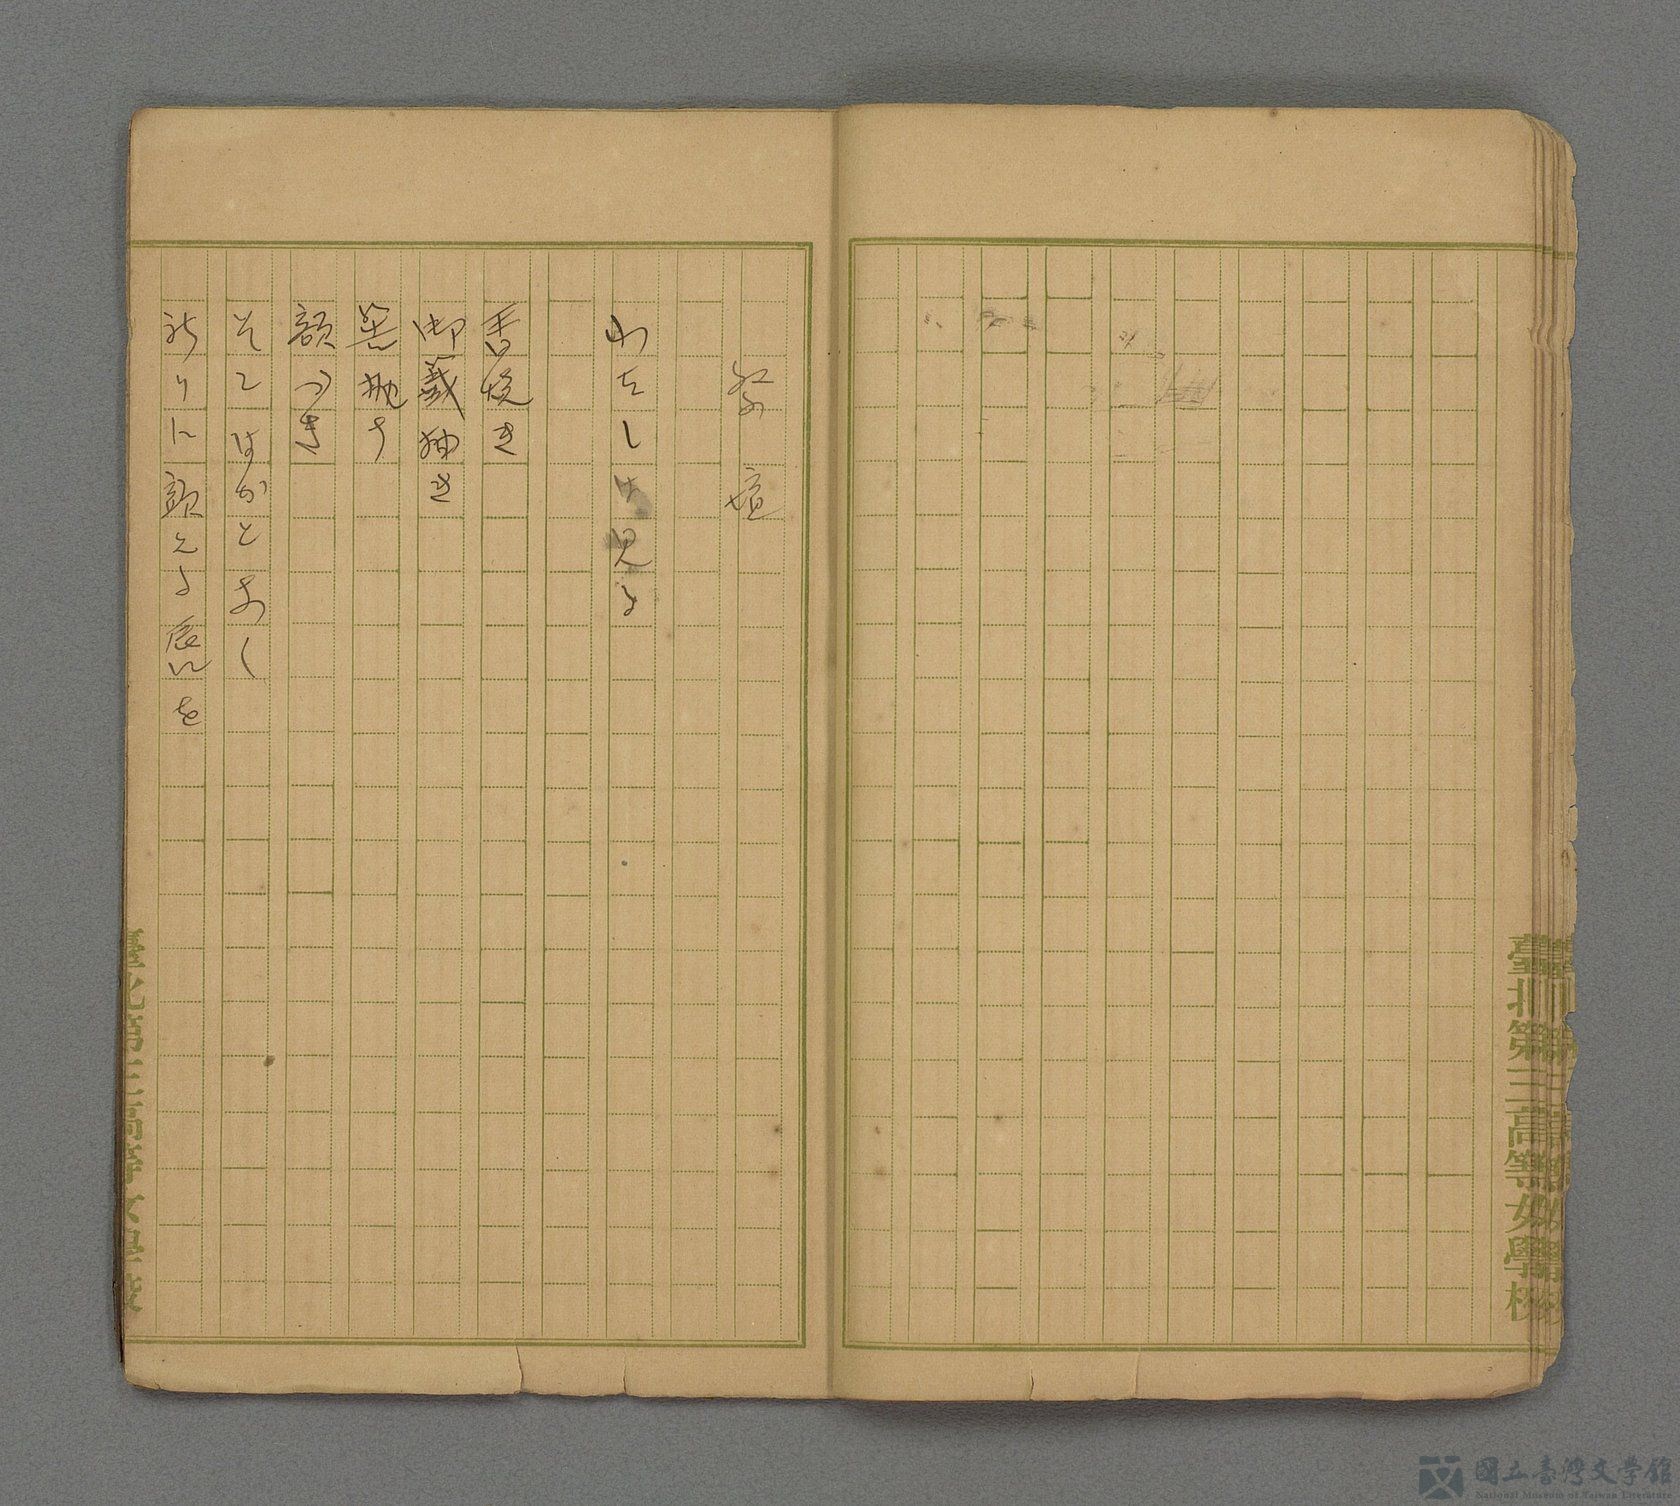 臺北第三高等女學校
祭壇
わたしは見る
香焼き
御籤抽き
筶抛
額づき
そこはかとなし
祈りに顫える唇を
臺北第三高等女學校
國立臺灣文學館
National Museum of Taiwan Literature